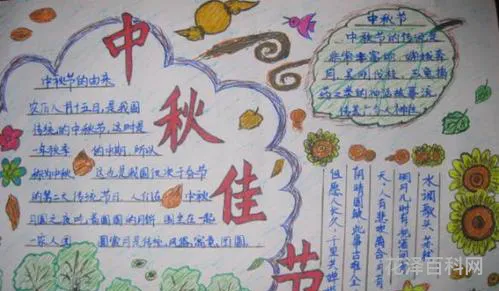 中秋佳节
中秋节的由来
农历八月十五日,是我国
传统的中秋节,这时是
一年秋季的中期,所以
称为中秋 这也是我国仅次于春节
的第二大传统节日,人们在中秋
圆圆的月饼 围坐在一起
圆 圆象月是传统,风俗,寓意,团圆.
中秋节
中秋节的传说是
非常丰富的,嫦娥奔
月,吴刚伐桂,玉兔捣
药之类的神话故事流
传甚广令人神往
水调歌头 苏轼
明月几时有 把酒问
天,人有悲欢离合,月有
阴晴圆缺,此事古难全
但愿人长久,千里共婵娟
花泽百科网